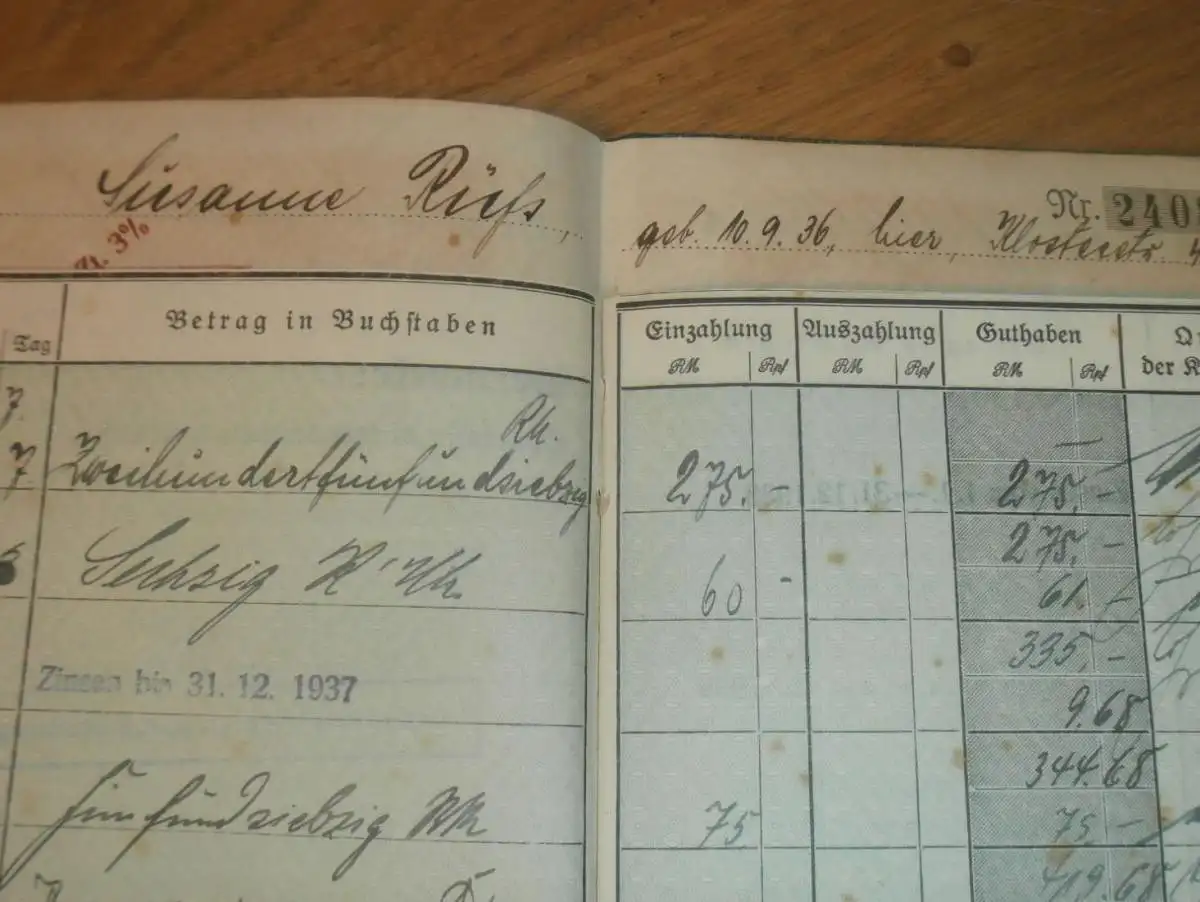 Susanne Rüefs,
3%
Nr. 240
geb. 10. 9. 36, hier, Klosterstr. 4
Tag
Betrag in Buchstaben
Einzahlung Auszahlung Guthaben
RM Rpf RM Rpf RM Rpf
der K
7.
RM.
7. Zweihundertfünfundsiebzig 275.- 275.-
275.-
Sechzig RM 60 -
335.-
Zinsen bis 31. 12. 1937
9.68
344.68
fünfundsiebzig RM 75 75.-
419.68